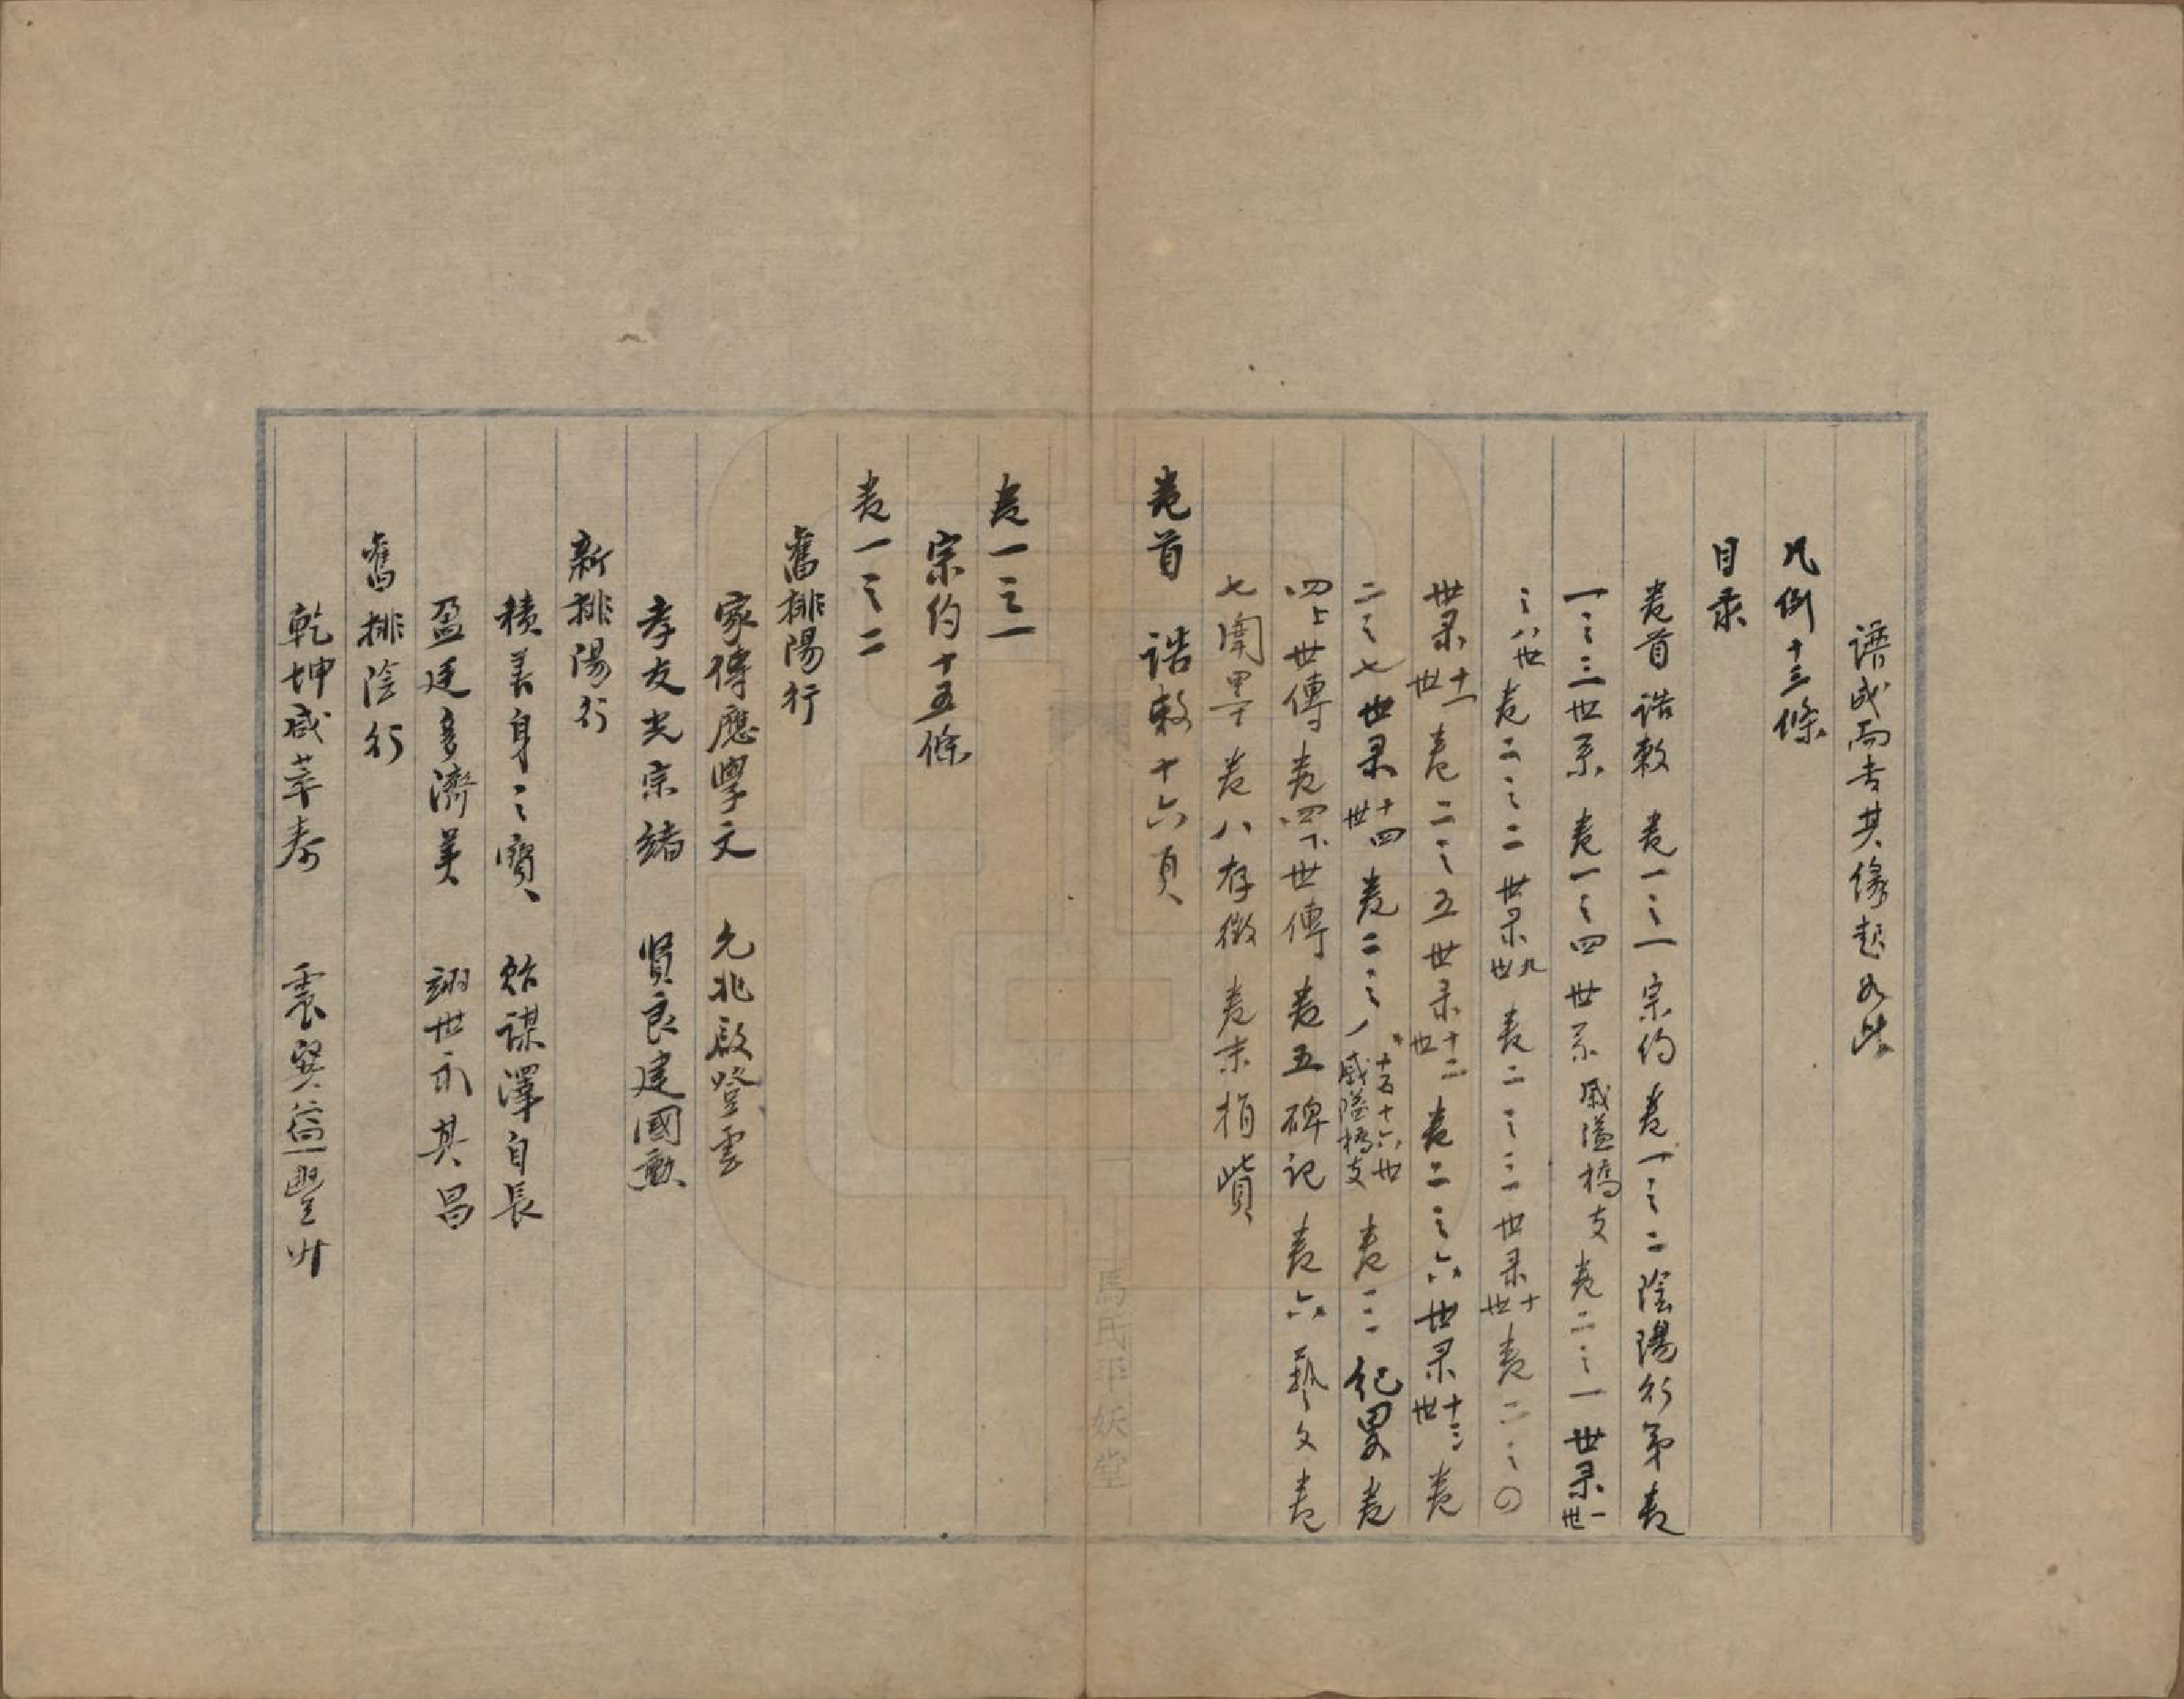 譜成而書其緣起如此
凡例十三條
目录
卷首誥敕 卷一之一宗约 卷一之二陰陽行第 卷
一之三世系 卷一之四世系戚隘橋支 卷二之一世录一世
之八世 卷二之二世录九世 卷二之三世录十世 卷二之四
世录十一世 卷二之五世录十二世 卷二之六世录十三世 卷
二之七世录十四世 卷二之八十五十六世戚隘橋支 卷三纪畧 卷
四上世傳 卷四下世傳 卷五碑记 卷六藝文 卷
七闈墨 卷八存徵 卷末捐貲
卷首 誥敕十六頁
卷一之一
宗约十五條
卷一之二
舊排陽行
家傳應學文 元兆啟登雲
孝友光宗緒 賢良建國勳
新排陽行
積善身之寶 貽謀澤自長
盈廷多濟美 詡世永其昌
舊排陰行
乾坤咸萃泰 震巽益豐升
馬氏平妖堂